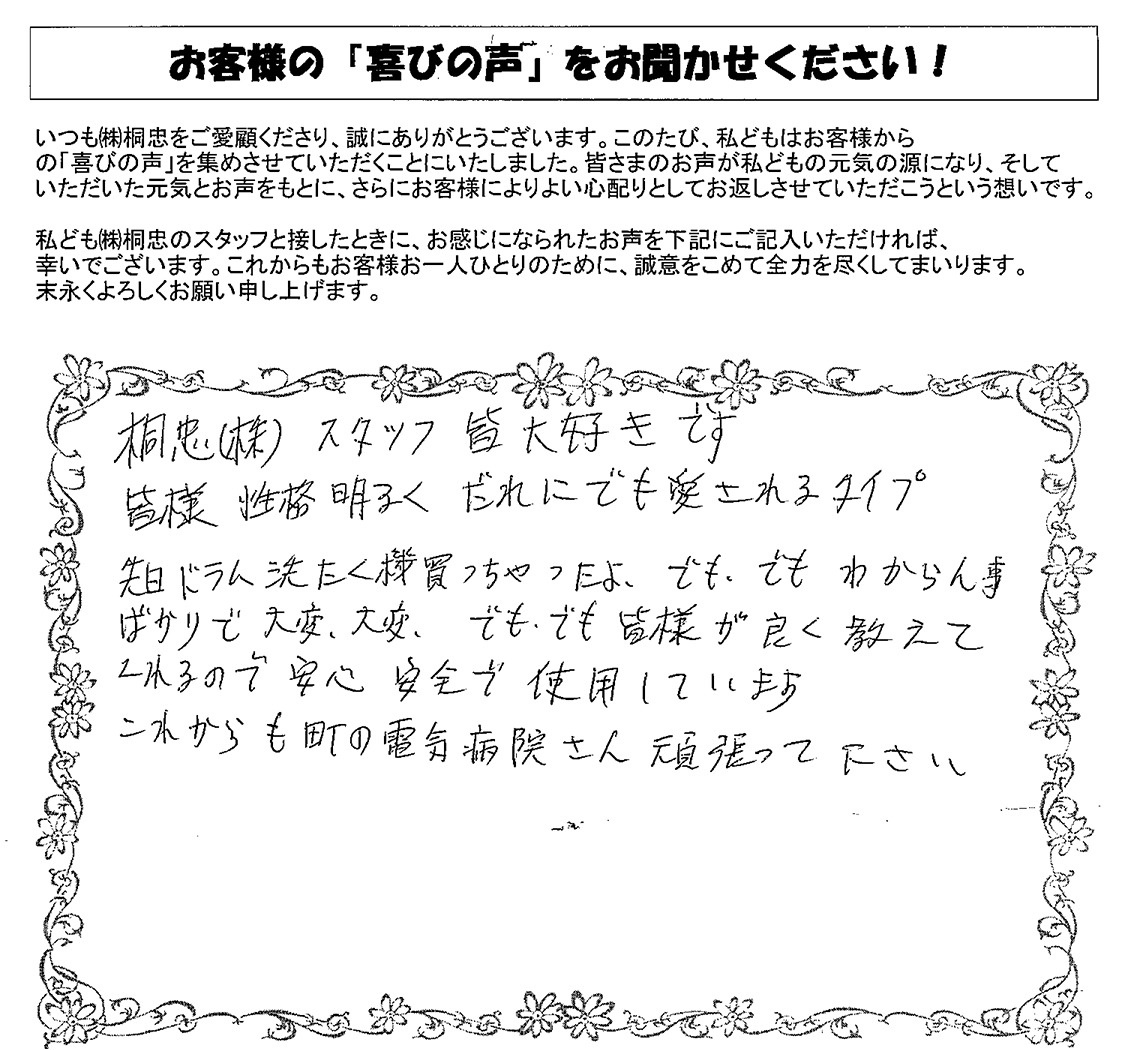 お客様の「喜びの声」をお聞かせください！
いつも㈱桐忠をご愛顧くださり、誠にありがとうございます。このたび、私どもはお客様から
の「喜びの声」を集めさせていただくことにいたしました。皆さまのお声が私どもの元気の源になり、そして
いただいた元気とお声をもとに、さらにお客様によりよい心配りとしてお返しさせていただこうという想いです。
私ども㈱桐忠のスタッフと接したときに、お感じになられたお声を下記にご記入いただければ、
幸いでございます。これからもお客様お一人ひとりのために、誠意をこめて全力を尽くしてまいります。
末永くよろしくお願い申し上げます。
桐忠(株) スタッフ 皆大好きです
皆様 性格明るく だれにでも愛されるタイプ
先日ドラム洗たく機買っちゃったよ、でも、でも わからん事
ばかりで 大変、大変、 でも、でも 皆様が良く教えて
くれるので 安心 安全で 使用しています
これからも町の電気病院さん 頑張って下さい